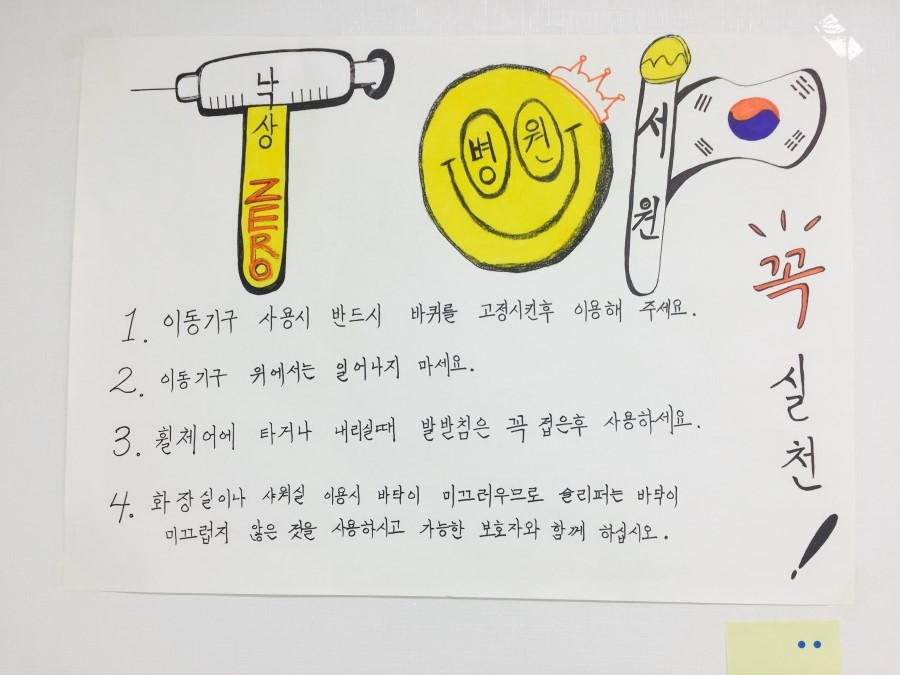 낙상 ZERO
병원
서원
꼭 실천!
1. 이동기구 사용시 반드시 바퀴를 고정시킨후 이용해 주세요.
2. 이동기구 위에서는 일어나지 마세요.
3. 휠체어에 타거나 내리실때 발받침은 꼭 접은후 사용하세요.
4. 화장실이나 샤워실 이용시 바닥이 미끄러우므로 슬리퍼는 바닥이
미끄럽지 않은 것을 사용하시고 가능한 보호자와 함께 하십시오.